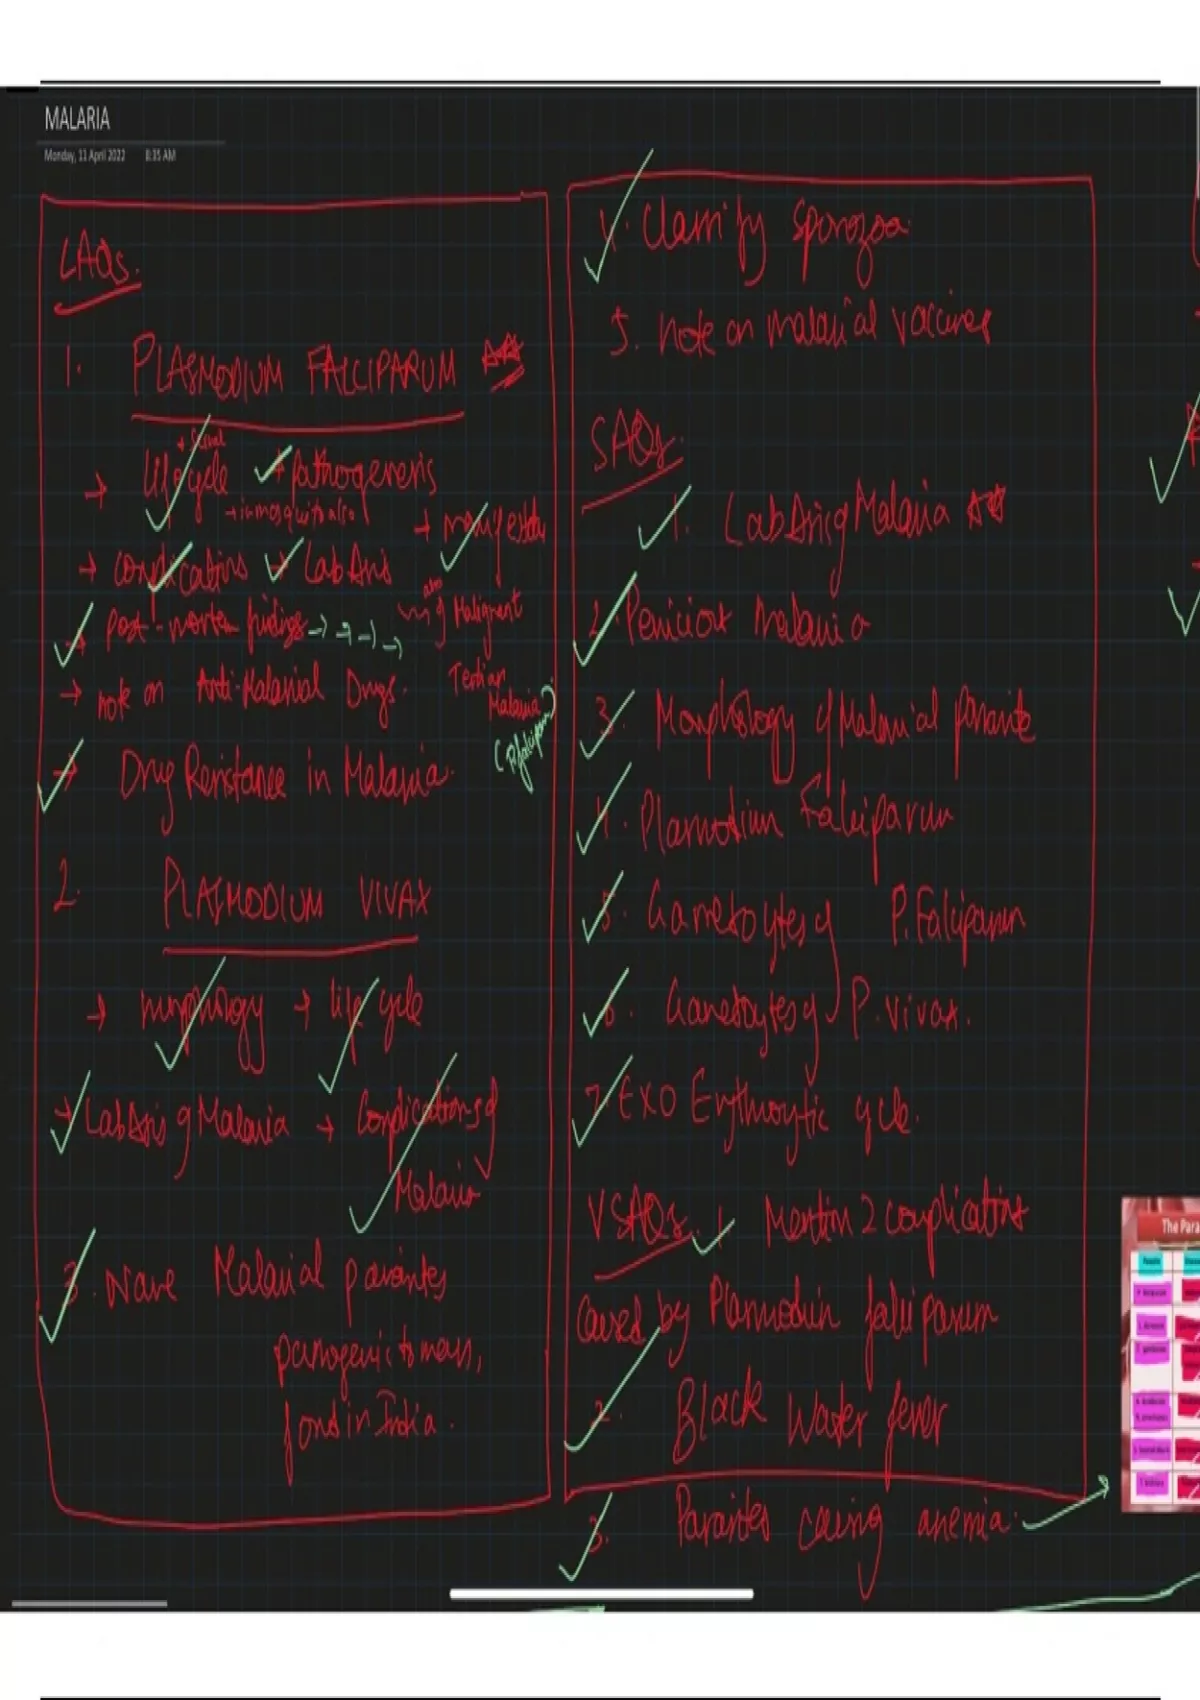 MALARIA
Monday, 11 April 2022 8:35 AM
LAQs.
1. PLASMODIUM FALCIPARUM
→ life cycle → pathogenesis
→ in mosquito also
→ complications → Lab
→ post-mortem findings → → → →
of Malignant
Tertian
Malaria
→ note on Anti-Malarial Drugs.
(P. falciparum)
→ Drug Resistance in Malaria.
2. PLASMODIUM VIVAX
→ morphology → life cycle
→ Lab of Malaria → Complications of
Malaria
3. Name Malarial parasites
pathogenic to man,
found in India.
4. Classify Sporozoa.
5. Note on malarial vaccines
SAQs.
1. Lab of Malaria
2. Pernicious Malaria
3. Morphology of Malarial Parasite
4. Plasmodium Falciparum
5. Gametocytes of P. Falciparum
6. Gametocytes of P. vivax.
7. EXO Erythrocytic cycle.
VSAQs. 1. Mention 2 complications
Caused by Plasmodium falciparum
2. Black Water fever
3. Parasites causing anemia.
The Para